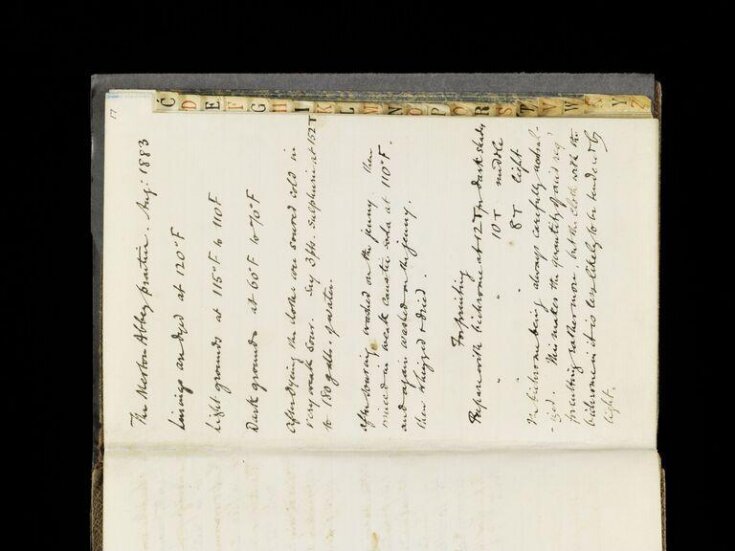 17
C D E F G H I K L M N O P Q R S T V W X Y Z
The Merton Abbey practice. Aug: 1883
Linings are dyed at 120°F
Light grounds at 115°F to 110F
Dark grounds at 60°F to 70°F
After dyeing the clothes are soured cold in
very weak sour. Say 3 pts. sulphuric at 152T
to 180 galls. of water.
After souring, washed on the jenny then
rinced in weak caustic soda at 110°F.
and again washed on the jenny.
then whizzed & dried.
For printing
Prepare with bichrome at 12T for dark shades
" " 10T middle
" " 8T light
The bichrome being always carefully neutral-
-ized. This makes the quantity of acid req'
printing rather more, but the cloth with the
bichrome in it is less likely to be tendered by
light.